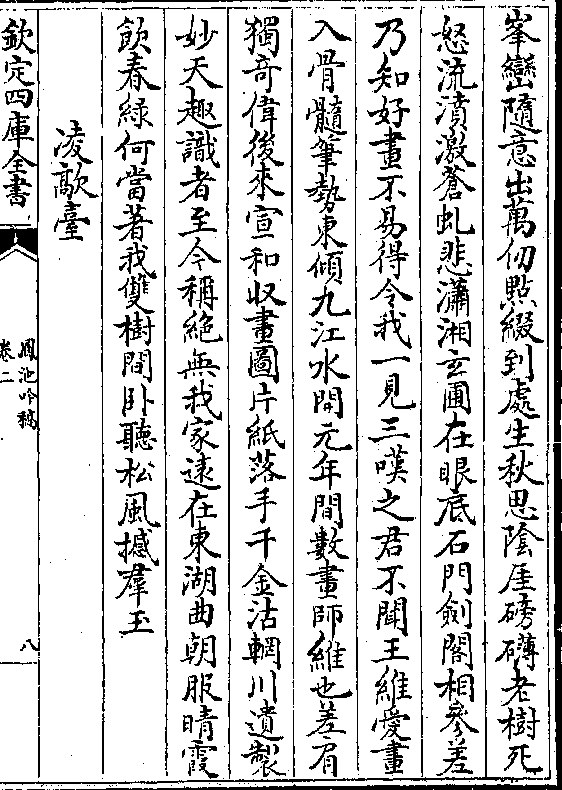 峯巒隨意出萬仞點綴到處生秋思陰厓磅礴老樹死
怒流濆激蒼虬悲瀟湘玄圃在眼底石門劍閣相參差
乃知好畫不易得令我一見三嘆之君不聞王維愛畫
入骨髓筆勢東傾九江水開元年間數畫師維也差肩
獨竒偉後來宣和収畫圖片紙落手千金沽輞川遺製
妙天趣識者至今稱絶無我家遠在東湖曲朝服晴霞
飲春緑何當著我雙樹間卧聽松風撼羣玉
凌歊臺
欽定四庫全書
鳳池吟稿
卷二
八